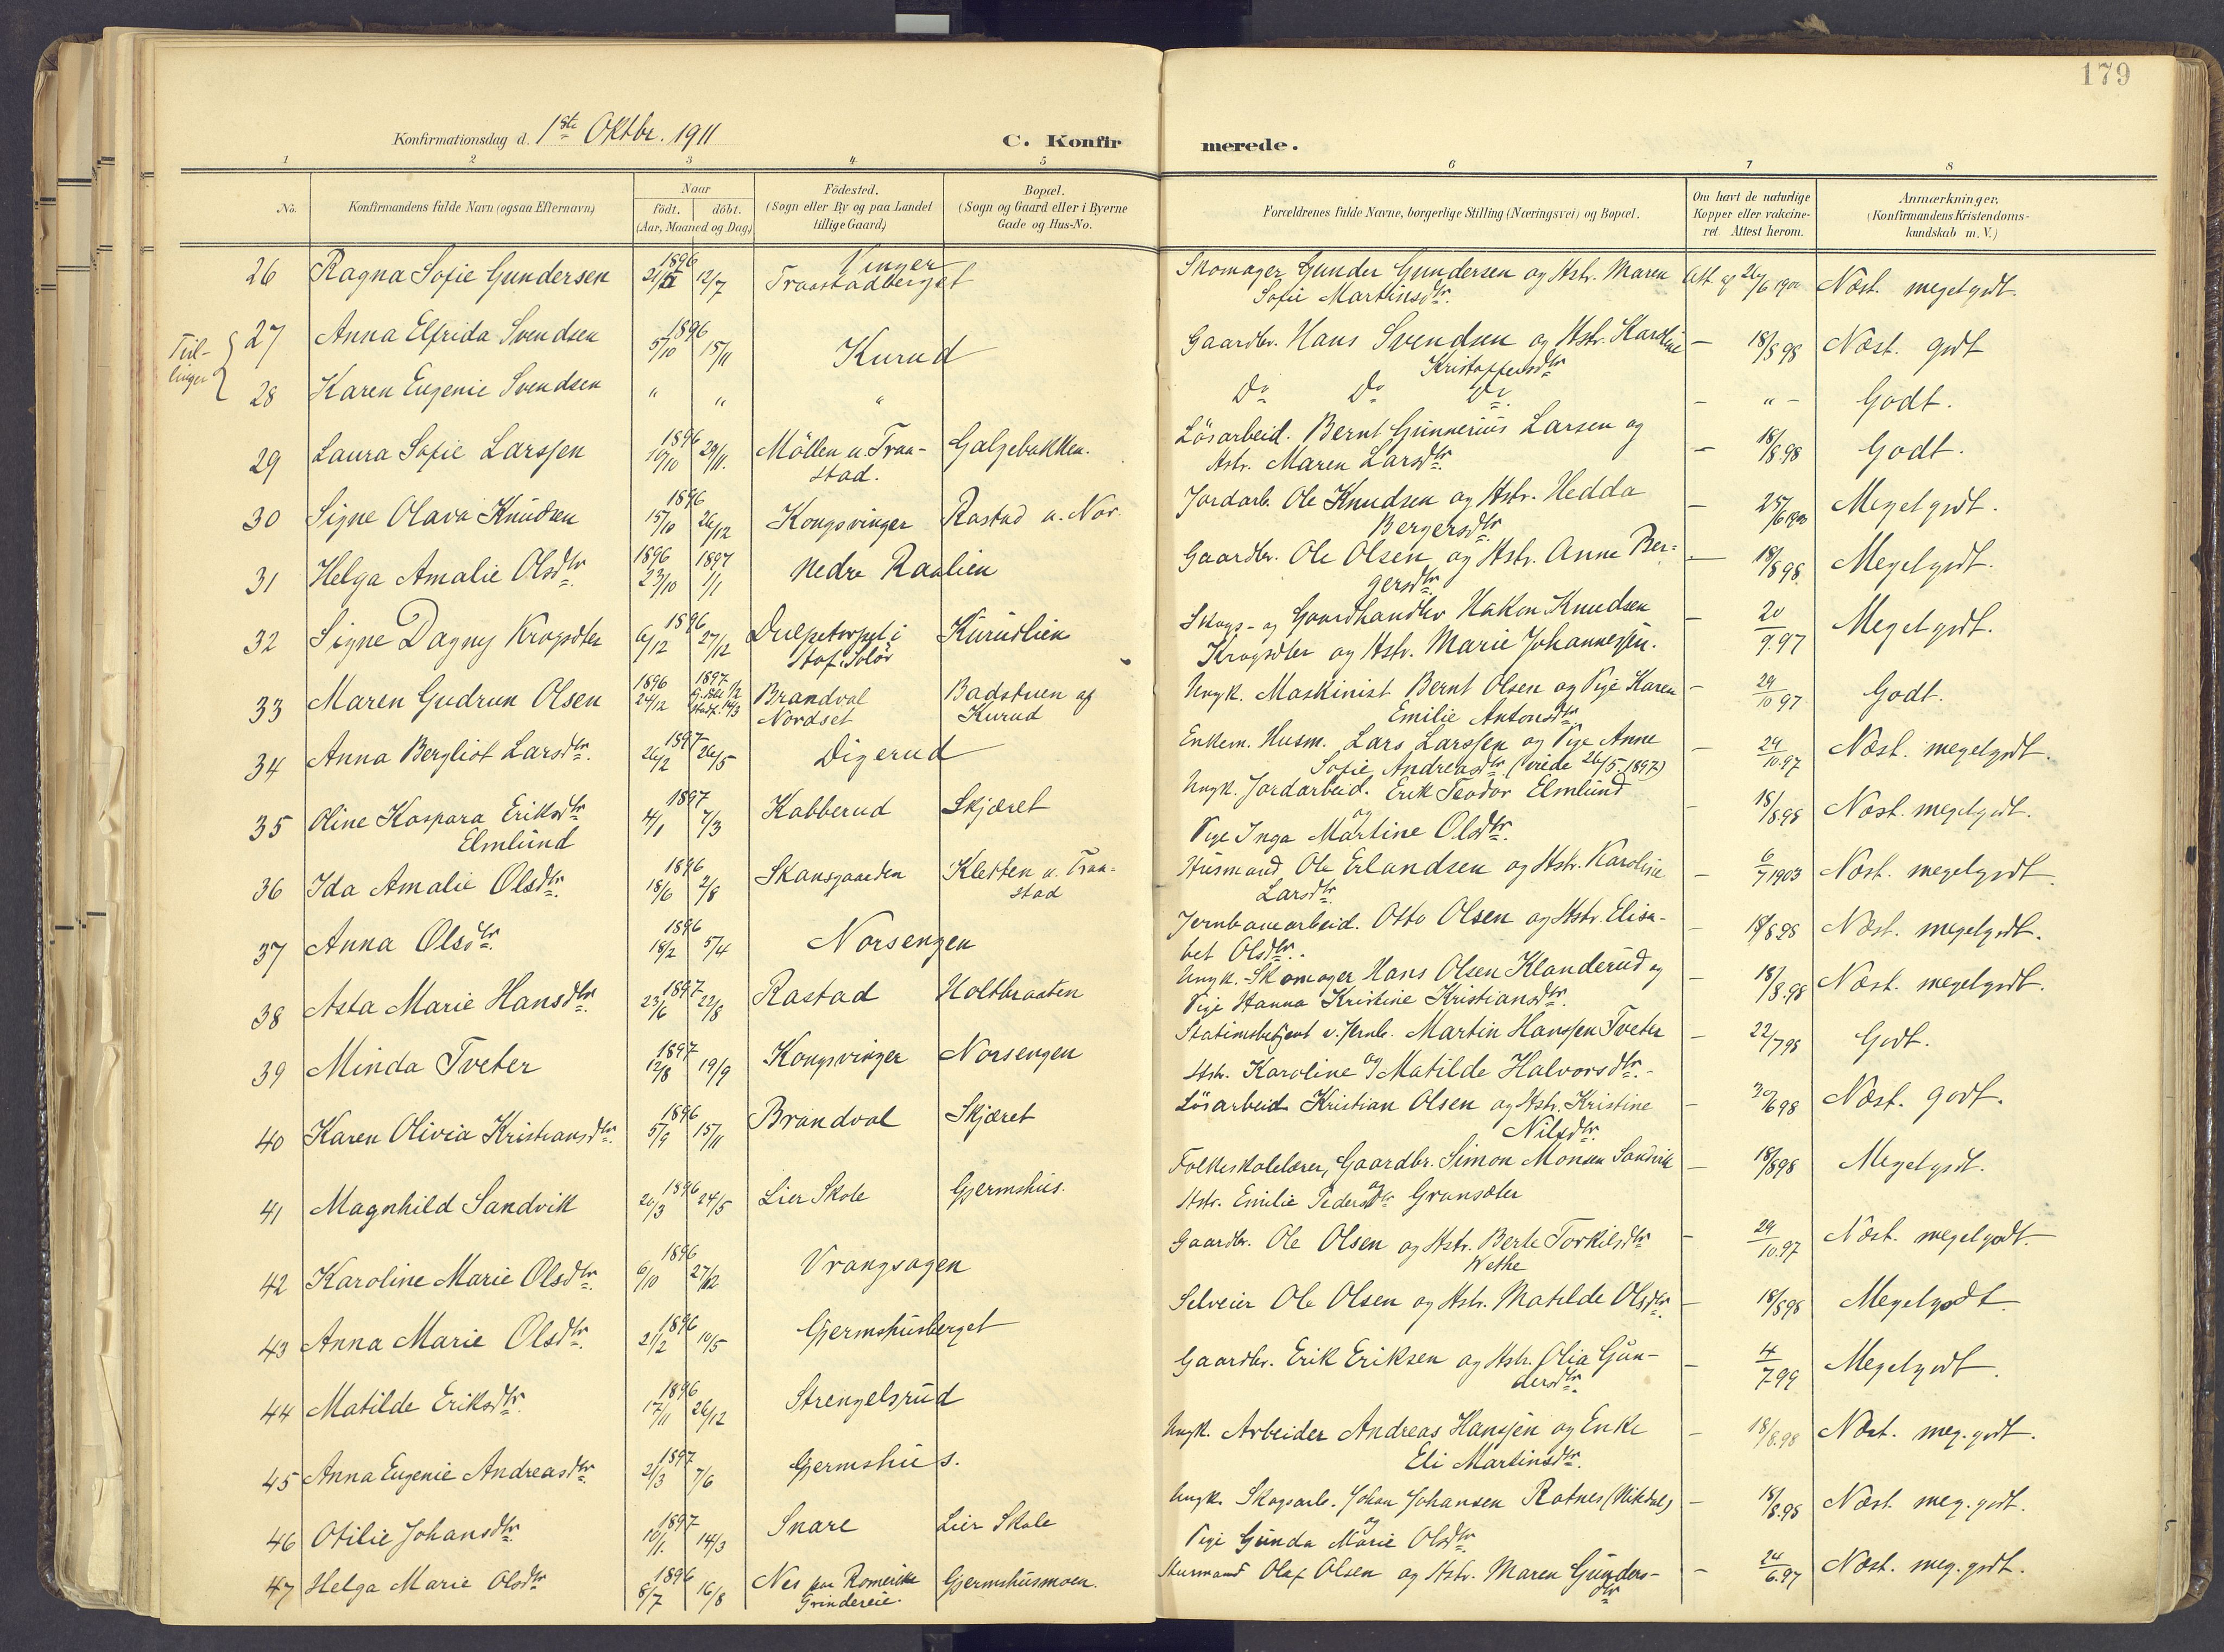 179
Konfirmationsdag d. 1ste Oktbr. 1911
C. Konfir merede.
1 2 3 4 5 6 7 8
No. Konfirmandens fulde Navn (ogsaa Efternavn) Naar födt. döbt. (Aar, Maaned og Dag) Födested. (Sogn eller By og paa Landet tillige Gaard) Bopæl. (Sogn og Gaard eller i Byerne Gade og Hus-No. Forældrenes fulde Navne, borgerlige Stilling (Næringsvei) og Bopæl. Om havt de naturlige Kopper eller vakcineret. Attest herom. Anmærkninger, (Konfirmandens Kristendomskundskab m. V.)
26 Ragna Sofie Gundersen 1896 12/7 Vinger Traastadberget Skomager Gunder Gundersen og Hstr. Maren Att. af 26/6 1900 Næst. megetgodt.
Sofie Martinsdtr.
Tvillinger
27 Anna Elfrida Svendsen 1896 5/10 15/11 Kurud Gaardbr. Hans Svendsen og Hstr. Karoline — 18/8 98 Næst. godt
Kristoffersdtr
28 Karen Eugenie Svendsen " " " Do Do Do. - " - Godt.
29 Laura Sofie Larssen 1896 10/10 29/11. Möllen u. Traastad. Galgebakken. Lösarbeid. Bernt Gunnerius Larsen og — 18/8.98 Godt.
Hstr. Maren Larsdtr.
30 Signe Olava Knudsen 1896 15/10 26/12 Kongsvinger Rastad u. Nor. Jordarb. Ole Knudsen og Hstr. Hedda — 25/6 1900 Megetgodt.
Bergersdtr.
31 Helga Amalie Olsdtr. 1896 23/10 1897 1/1 Nedre Raalien Gaardbr. Ole Olsen og Hstr. Anne Ber= — 18/8 98. Megetgodt.
gersdtr.
32 Signe Dagny Krogsæter 1896 6/12 27/12 i Hof. Solör Kurudlien Skogs- og Gaardhandler Hakon Knudsen — 20/9.97 Megetgodt.
Krogsæter og Hstr. Marie Johannessen.
33 Maren Gudrun Olsen 1896 24/12 1897 Brandval Nordset Badstuen af Kurud Ungk. Maskinist Bernt Olsen og Pige Karen — 29/10 97 Godt.
Emilie Antonsdtr.
34 Anna Bergliot Larsdtr. 1897 26/2 26/5 Digerud Enkem. Husm. Lars Larssen og Pige Anne — 29/10.97 Næst. megetgodt.
Sofie Andreasdtr. (viede 26/5 1897)
35 Oline Kaspara Eriksdtr Elmlund 1897 4/1 7/3 Kabberud Skjæret Ungk. Jordarbeid. Erik Teodor Elmlund — 18/8.98 Næst. megetgodt.
og Pige Inga Martine Olsdtr.
36 Ida Amalie Olsdtr. 1896 18/6 2/8 Skansgaarden Kletten u. Traastad Husmand Ole Erlandsen og Hstr. Karoline — 6/7 1903 Næst. megetgodt.
Larsdtr.
37 Anna Olsdtr. 1896 18/2 5/4 Norsengen Jernbanearbeid. Otto Olsen og Hstr. Elisa- — 18/8 98 Næst. megetgodt.
bet Olsdtr.
38 Asta Marie Hansdtr. 1897 23/6 22/8 Rastad Holtbraaten Ungk. Skomager Hans Olsen Klanderud og — 18/8.98 Næst. megetgodt.
Pige Hanna Kristine Kristiansdtr.
39 Minda Tveter 1897 12/8 19/9 Kongsvinger Norsengen Stationsbetjent v. Jernb. Martin Hanssen Tveter — 22/7 98 Godt.
og Hstr. Karoline Matilde Halvorsdtr.
40 Karen Olivia Kristiansdtr. 1896 5/9 15/11 Brandval Skjæret Lösarbeid Kristian Olsen og Hstr. Kristine — 30/6 98 Næst. godt.
Nilsdtr.
41 Magnhild Sandvik 1896 20/3 24/5 Lier Skole Gjermshus. Folkeskolelærer, Gaardbr. Simon Monsen Sandvik — 18/8 98 Megetgodt.
og Hstr. Emilie Pedersdtr Gransæter
42 Karoline Marie Olsdtr. 1896 6/10 27/12 Vrangsagen Gaardbr. Ole Olsen og Hstr. Berte Torkilsdtr — 29/10.97 Næst. megetgodt.
Wethe
43 Anna Marie Olsdtr. 1896 21/2 10/5 Gjermshusberget Selveier Ole Olsen og Hstr. Matilde Olsdtr. — 18/8 98 Megetgodt.
44 Matilde Eriksdtr. 1896 17/11 26/12 Strengelsrud Gaardbr. Erik Eriksen og Hstr. Olia Gun- — 4/7 99 Megetgodt.
dersdtr.
45 Anna Eugenie Andreasdtr 1897 21/3 7/6 Gjermshus. Ungk. Arbeider Andreas Hanssen og Enke — 18/8.98 Næst. meg. godt.
Eli Martinsdtr.
46 Otilie Johansdtr. 1897 10/1. 14/3 Snare Lier Skole Ungk. Skogsarb. Johan Johansen Rotnes (Nitedal) — 18/8.98 Næst. meg. godt.
og Pige Gunda Marie Olsdtr.
47 Helga Marie Olsdtr 1896 8/7 16/8 Nes paa Romerike Grindereie. Gjermshusmoen. Husmand Olaf Olsen og Hstr. Maren Gunders- — 24/6.97 Næst. meg. godt.
dtr